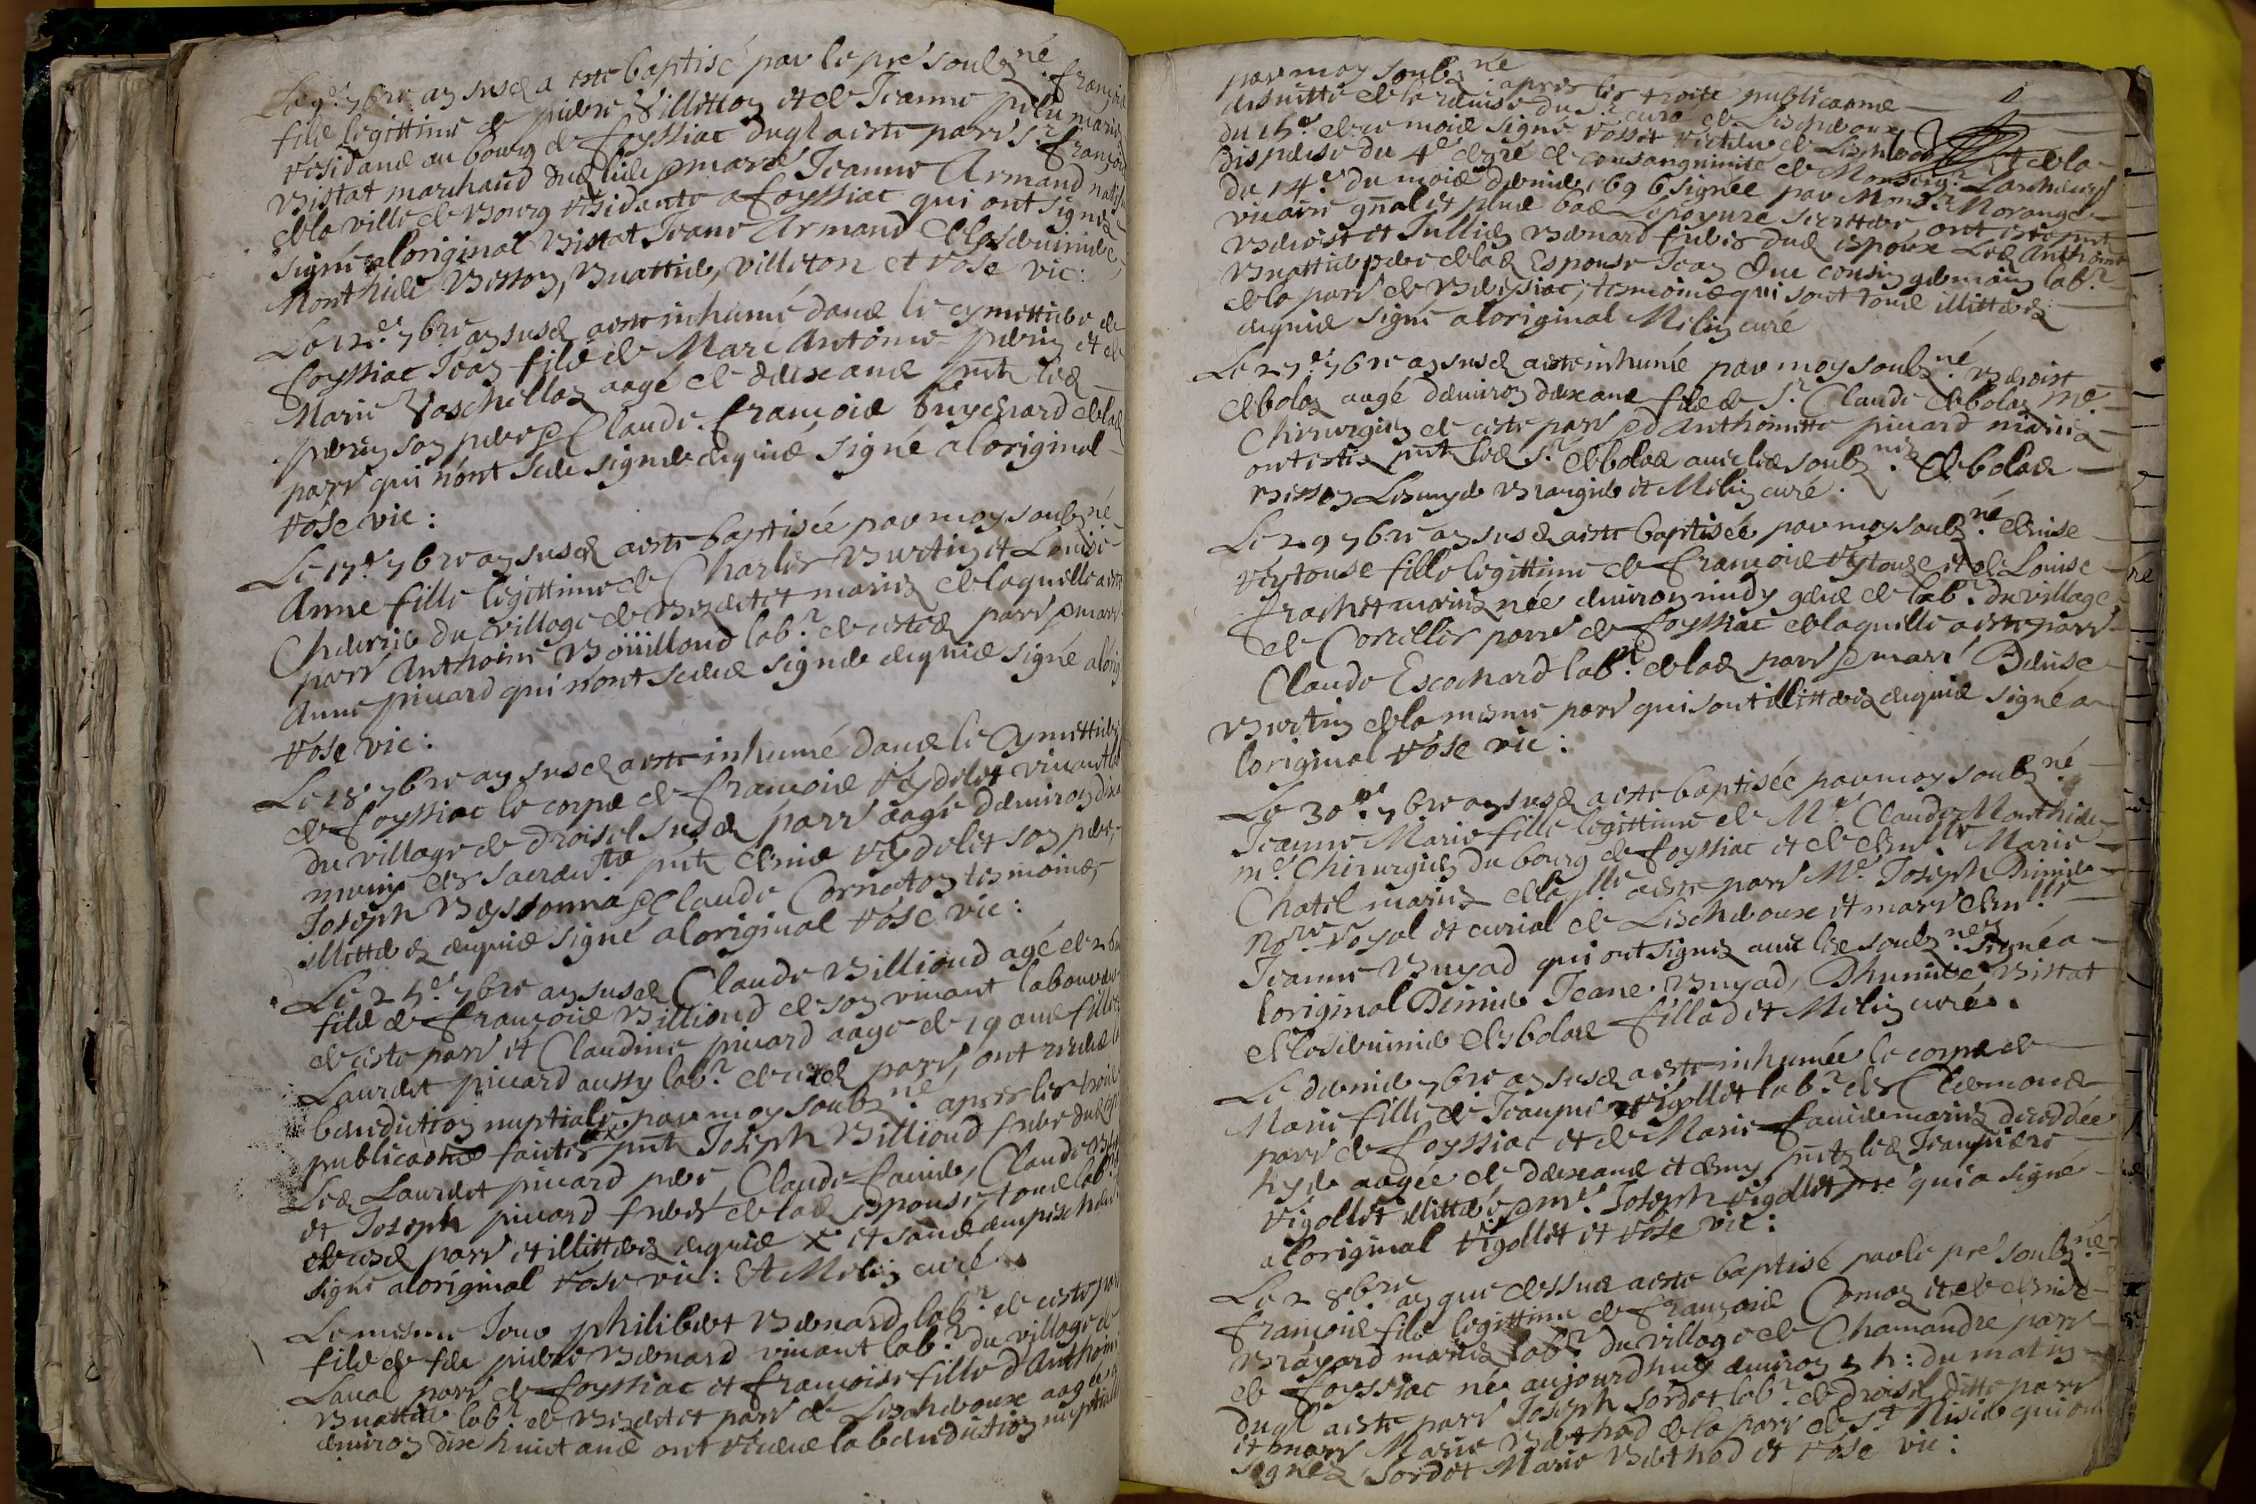 Le 9e 7bre an susd a este baptisé par le pre soubzné françois
fils legittime de pierre Villetton et de Jeanne mariez
residans au bourg de foyssiac duql a este parr sr françois
Bistat marchand dud lieu p marr Jeanne Armand natifve
de la ville de Bourg residante a foyssiac qui ont signez
signé a loriginal Bistat Jeane Armand
Monthide Bisson, Buattier, Villeton et Rose vic:
Le 12e 7bre an susd a este inhumé dans le cymettiere de
foyssiac Jean fils de Marc Antoine perrin et de
Marie Vaschellon aagé de deux ans pnts led
perrin son pere p Claude françois Guychard de lad
parr qui n'ont sceu signer enquis signé a loriginal
Rose vic:
Le 17e 7bre an susd a este baptisée par moy soubzné
Anne fille legittime de Charles Burtin et Louise
du village de mariez de laquelle a este
parr Anthoine Boüilloud labr de ceste parr p marr
Anne piuard qui nont sceu signer enquis signé a lorig
Rose vic:
Le 18 7bre an susd a este inhumé dans le cymettiere
de foyssiac le corps de françois Reydelet viuant lab
du village de Droisel susd parr aagé denuiron dix
muny des sacremts pnts Denis Reydelet son pere,
Joseph Beyssonna p Claude Cornaton tesmoins
illitterez enquis signé a loriginal Rose vic:
Le 25e 7bre an susd Claude Billioud agé de 26
fils de françois Billioud de son viuant laboureur
de ceste parr et Claudine piuard aage de 19 ans fille
Laurdet piuard aussy labr de cested parr, ont receu la
benediction nuptiale par moy soubzné apres les trois
publicaons faites pnts Joseph Billioud frere dud
Led Laurdet piuard pere, Claude fauier, Claude
et Joseph piuard frere de lad espouse, tous labrs
de cesd parr et illitterez enquis et sans empeschem
signé a loriginal Rose vic: Et Melin curé.
Le mesme Jour philibert Bernard labr de ceste par
fils de feu pierre Bernard viuant labr du village de
Laual parr de foyssiac et françoise fille d'Anthoine
Buattier labr de parr de Lescheroux aagée
enuiron dix huict ans ont receu la benediction nuptiale
par moy soubzné apres les trois publicaons
ensuitte de la remise du sr curé de Lescheroux
du 15e de ce mois signé Rosset victaire de Lescheroux Et de la
dispense du 4e degré de consanguinité de Monseigr Larcheues
du 14e du mois dernier 1696 signée par Monsr Morange
vicaire gñal et plus bas Lepoyure secrettaire, ont este pnts
Benoist et Jullien Bernard freres dud espoux Led Anthoine
Buattier pere de lad Espouse Jean Duc cousin germain labr
de la parr de tesmoins qui sont tous illitterez
enquis signé a loriginal Melin curé
Le 27e 7bre an susd a este inhumé par moy soubzné Benoist
Debolan aagé denuiron deux ans fils de sr Claude Debolan me
Chirurgien de ceste parr p d Anthoinette piuard mariez
ont estez pnts led sr Debolas auec les soubznés. Debolas
Bisson et Melin curé.
Le 29 7bre an susd a este baptisée par moy soubzné Denise
Reytouse fille legittime de françois Reytouze et de Louise
mariez née enuiron midy gens de labr du village
de Corcelles parr de foyssiac de laquelle a este parr
Claude Escochard labr de lad parr p marr Denise
Burtin de la mesme parr qui sont illitterez enquis signé a
loriginal Rose vic:
Le 30e 7bre an susd a este baptisée par moy soubzné
Jeanne Marie fille legittime de Me Claude Monthide
me Chirurgien du bourg de foyssiac et de Dmlle Marie
Chatel mariez de lqlle a este parr Me Joseph
nore royal et curial de Lescheroux et marr Dmlle
Jeanne Buyad qui ont signez auec les soubznés signé a
loriginal Jeane Buyad, Bistat
Debolas fillad et Melin curé.
Le dernier 7bre an susd a este inhumée le corps de
Marie fille de Jeanpierre Rigollet labr des Clermons
parr de foyssiac et de Marie fauier mariez decedée
hyer aagée de deux ans et demy pnts led Jeanpierre
Rigollet illitteré p me Joseph Rigollet pre qui a signé
a loriginal Rigollet et Rose vic:
Le 2 8bre an que dessus a este baptisé par le pre soubzné
françois fils legittime de françois Comas et de Denise
Brayard mariez labr du village de Chamandre parr
de foyssiac né aujourdhuy enuiron 5 h: du matin
duql a este parr Joseph Sordet labr de Droisel, ditte parr
et marr Marie Bethod de la parr de St Nisier qui ont
signez, Sordet Marie Bethod et Rose vic: